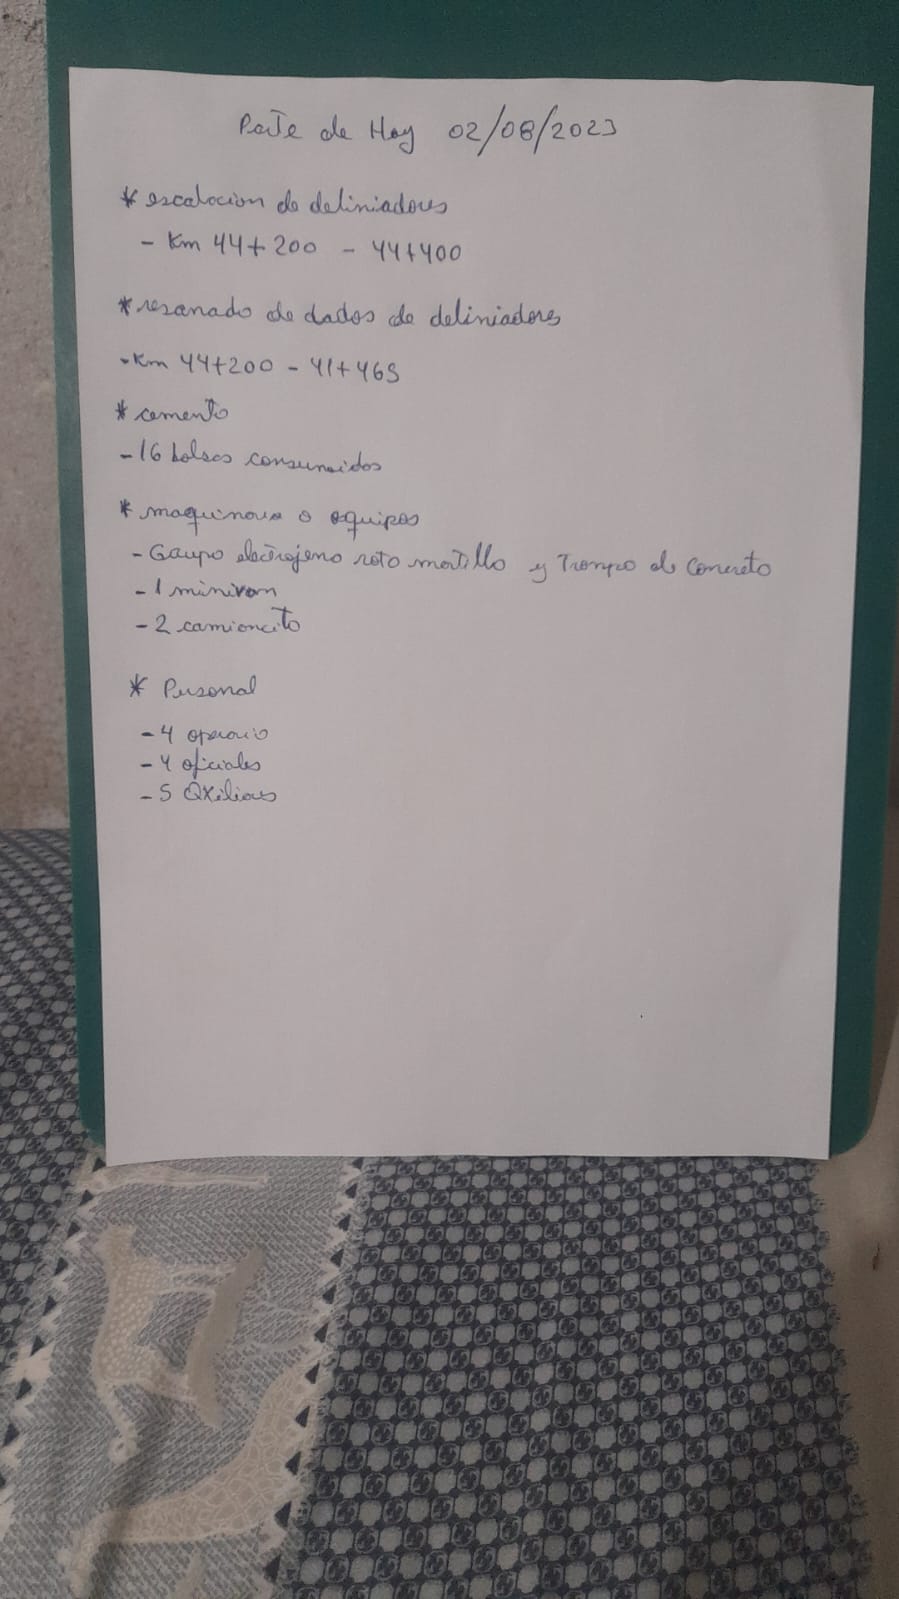 Parte de Hoy 02/08/2023
* escalacion de deliniadores
- Km 44+200 - 44+400
* resanado de dados de deliniadores
- Km 44+200 - 41+465
* cemento
- 16 bolsas consumidos
* maquinaria o equipos
- Gaupo electrojeno roto martillo y Trompo de Concreto
- 1 minivan
- 2 camioncito
* Personal
- 4 operario
- 4 oficiales
- 5 Oxiliares